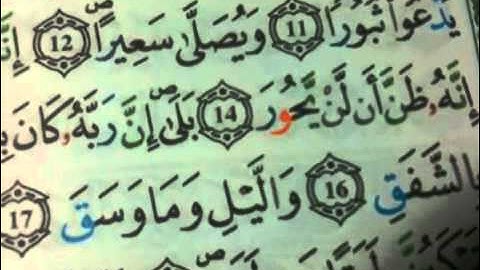 يَدْعُوا۟ ثُبُورًا 11 وَيَصْلَىٰ سَعِيرًا 12 إِنَّ
إِنَّهُۥ ظَنَّ أَن لَّن يَحُورَ 14 بَلَىٰٓ إِنَّ رَبَّهُۥ كَانَ
بِالشَّفَقِ 16 وَالَّيْلِ وَمَا وَسَقَ 17